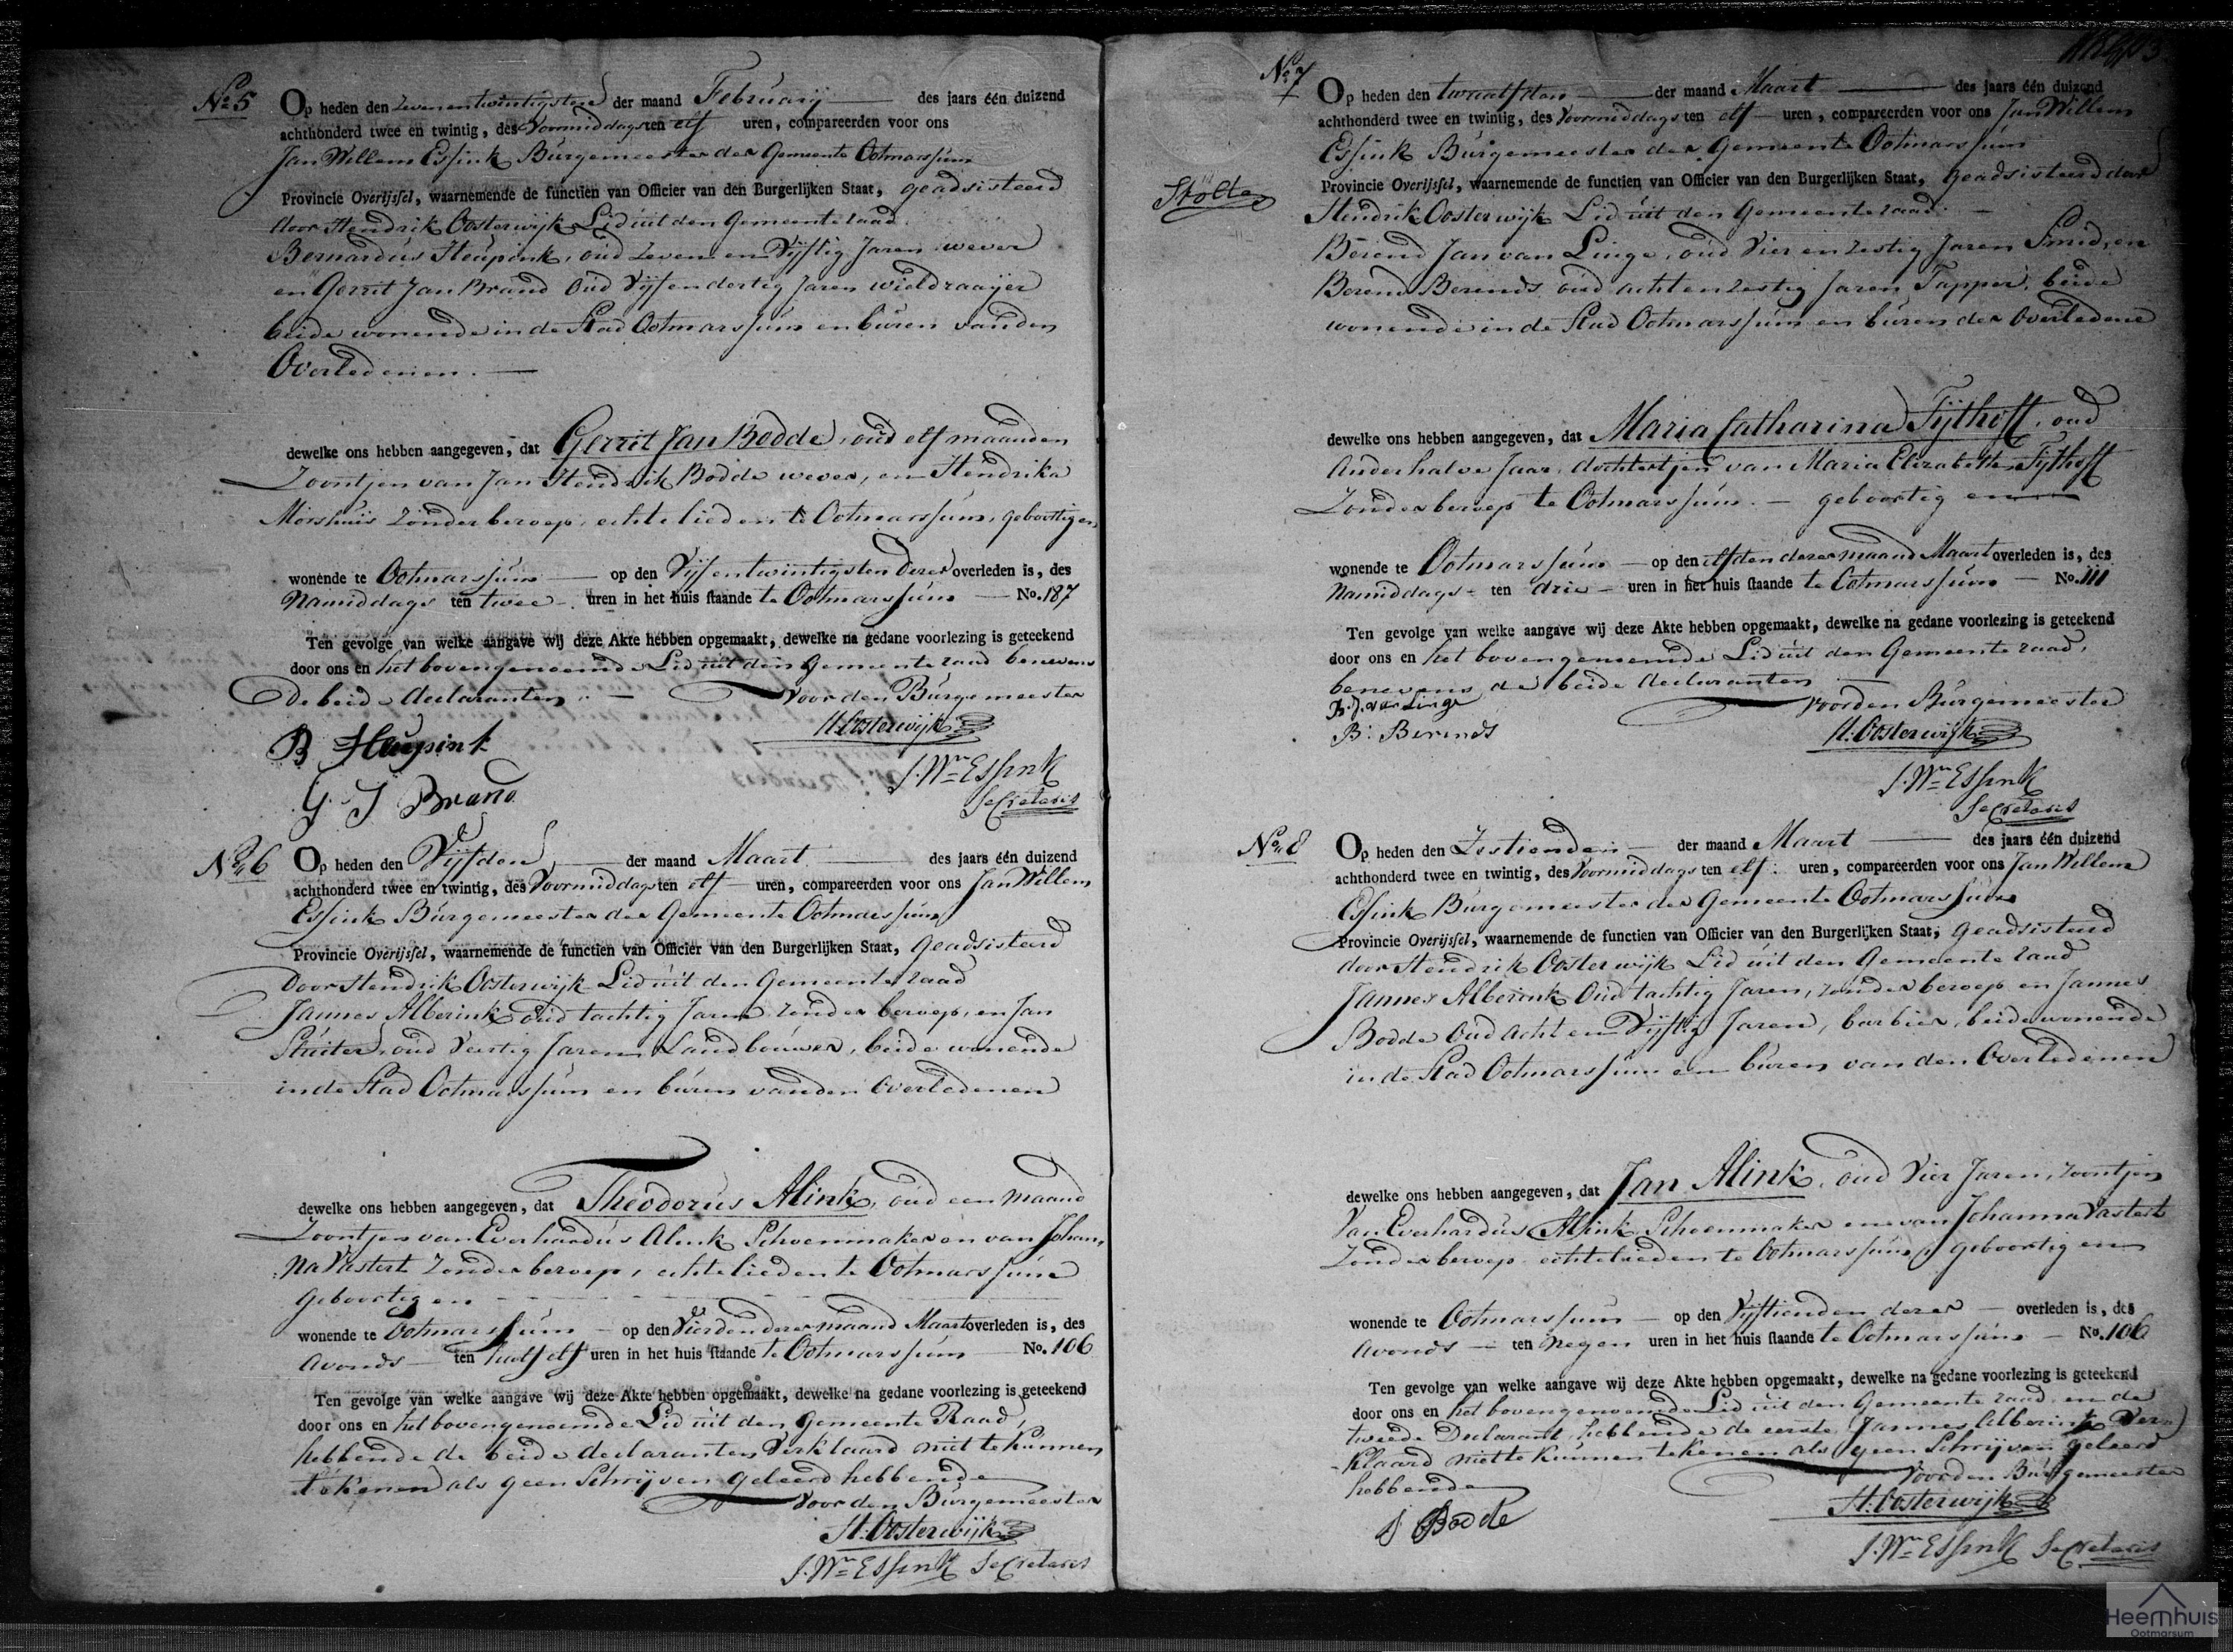 No. 5
Op heden den Zevenentwintigsten der maand Februarij des jaars één duizend
achthonderd twee en twintig, des Voormiddags ten elf uren, compareerden voor ons
Jan Willem Essink Burgemeester der Gemeente Ootmarssum
Provincie Overijssel, waarnemende de functien van Officier van den Burgerlijken Staat, geadsisteerd
door Hendrik Oosterwijk Lid uit den Gemeente raad
Bernardus Heupink, oud Zeven en Vijftig Jaren wever
en Gerrit Jan Brand oud Vijf en dertig Jaren wieldraaijer
beide wonende in de Stad Ootmarssum en buren van den
Overledenen.
dewelke ons hebben aangegeven, dat Gerrit Jan Bodde, oud elf maanden
Zoontjen van Jan Hendrik Bodde wever, en Hendrika
Morshuis Zonder beroep, echtelieden te Ootmarssum, geboortig en
wonende te Ootmarssum op den Vijfentwintigsten dezer overleden is, des
Namiddags ten twee uren in het huis staande te Ootmarssum No. 187
Ten gevolge van welke aangave wij deze Akte hebben opgemaakt, dewelke na gedane voorlezing is geteekend
door ons en het bovengenoemde Lid uit den Gemeente raad benevens
de beide declaranten. Voor den Burgemeester
H. Oosterwijk
B Heupink
J. Wm Essink
Secretaris
G. J Brand
No. 6
Op heden den Vijfden der maand Maart des jaars één duizend
achthonderd twee en twintig, des Voormiddags ten elf uren, compareerden voor ons Jan Willem
Essink Burgemeester der Gemeente Ootmarssum
Provincie Overijssel, waarnemende de functien van Officier van den Burgerlijken Staat, geadsisteerd
Door Hendrik Oosterwijk Lid uit den Gemeente raad
Jannes Alberink oud tachtig Jaren zonder beroep, en Jan
Sluiter, oud Veertig Jaren Landbouwer, beide wonende
in de Stad Ootmarssum en buren van den Overledenen
dewelke ons hebben aangegeven, dat Theodorus Alink, oud een maand
Zoontjen van Everhardus Alink Schoenmaker en van Johan,
na Vastert Zonder beroep, echtelieden te Ootmarssum
Geboortig en
wonende te Ootmarssum op den Vierden dezer maand Maart overleden is, des
Avonds ten half elf uren in het huis staande te Ootmarssum No. 106
Ten gevolge van welke aangave wij deze Akte hebben opgemaakt, dewelke na gedane voorlezing is geteekend
door ons en het bovengenoemde Lid uit den Gemeente Raad,
hebbende de beide declaranten Verklaard niet te kunnen
tekenen als geen Schrijven geleerd hebbende
Voor den Burgemeester
H. Oosterwijk
J. Wm Essink Secretaris
No. 7
Op heden den twaalfden der maand Maart des jaars één duizend
achthonderd twee en twintig, des Voormiddags ten elf uren, compareerden voor ons Jan Willem
Essink Burgemeester der Gemeente Ootmarssum
Provincie Overijssel, waarnemende de functien van Officier van den Burgerlijken Staat, geadsisteerd door
Hendrik Oosterwijk Lid uit den Gemeente raad.
Berend Jan van Linge, oud Vier en Zestig Jaren Smid, en
Berend Berends oud acht en Zestig Jaren Tapper, beide
wonende in de Stad Ootmarssum en buren der Overledene
dewelke ons hebben aangegeven, dat Maria Catharina Tijthoff, oud
Anderhalve Jaar, dochtertjen van Maria Elizabeth Tijthoff
Zonder beroep te Ootmarssum. geboortig en
wonende te Ootmarssum op den elfden dezer maand Maart overleden is, des
Namiddags ten drie uren in het huis staande te Ootmarssum No. 111
Ten gevolge van welke aangave wij deze Akte hebben opgemaakt, dewelke na gedane voorlezing is geteekend
door ons en het bovengenoemde Lid uit den Gemeente raad,
benevens de beide declaranten
B. J. van Linge
Voor den Burgemeester
B: Berends
H. Oosterwijk
J. Wm Essink
Secretaris
No. 8
Op heden den Zestienden der maand Maart des jaars één duizend
achthonderd twee en twintig, des Voormiddags ten elf uren, compareerden voor ons Jan Willem
Essink Burgemeester der Gemeente Ootmarssum
Provincie Overijssel, waarnemende de functien van Officier van den Burgerlijken Staat, geadsisteerd
door Hendrik Oosterwijk Lid uit den Gemeente raad
Jannes Alberink Oud tachtig Jaren, zonder beroep en Jannes
Bodde oud acht en Vijftig Jaren, barbier, beide wonende
in de Stad Ootmarssum en buren van den Overledenen
dewelke ons hebben aangegeven, dat Jan Alink, oud Vier Jaren, zoontjen
Van Everhardus Alink Schoenmaker en van Johanna Vastert
Zonder beroep echtelieden te Ootmarssum, geboortig en
wonende te Ootmarssum op den Vijftienden dezer overleden is, des
Avonds ten negen uren in het huis staande te Ootmarssum No. 106
Ten gevolge van welke aangave wij deze Akte hebben opgemaakt, dewelke na gedane voorlezing is geteekend
door ons en het bovengenoemde Lid uit den Gemeente raad en de
tweede Declarant, hebbende de eerste Jannes Alberink Ver
klaard niet te kunnen tekenen als geen Schrijven geleerd
hebbende
Voor den Burgemeester
H. Oosterwijk
J Bodde
J. Wm Essink Secretaris
Heemhuis
Ootmarsum